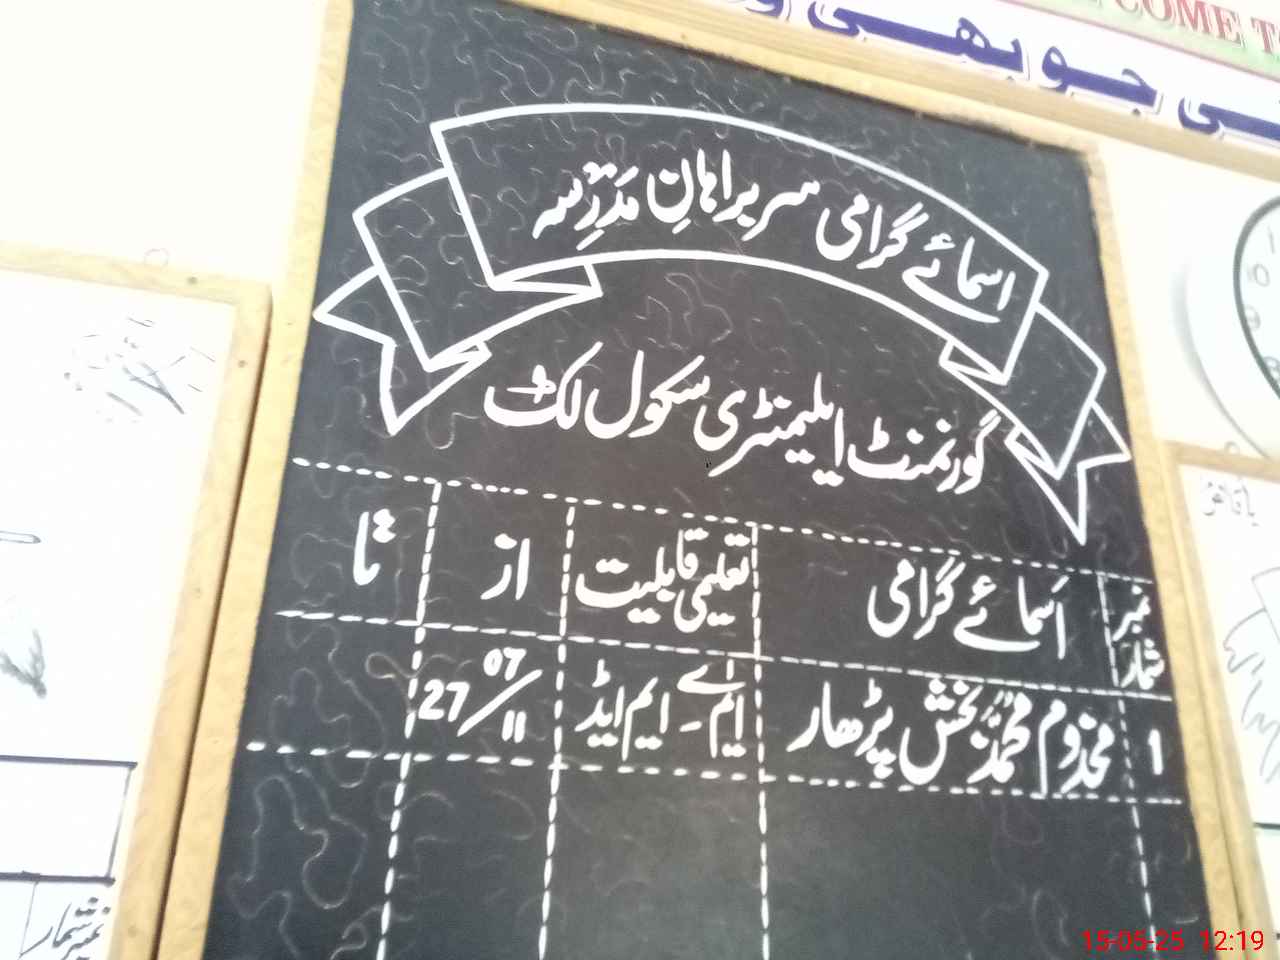 COME T
جو بھی
اسمائے گرامی سربراہانِ مَدرِسہ
گورنمنٹ ایلیمنٹری سکول لک
نمبر شمار اَسمائے گرامی تعلیمی قابلیت از تا
1 مخدوم محمد بخش پڑھار ایم اے۔ ایم ایڈ 27/11 07
نمبر شمار
15-05-25 12:19